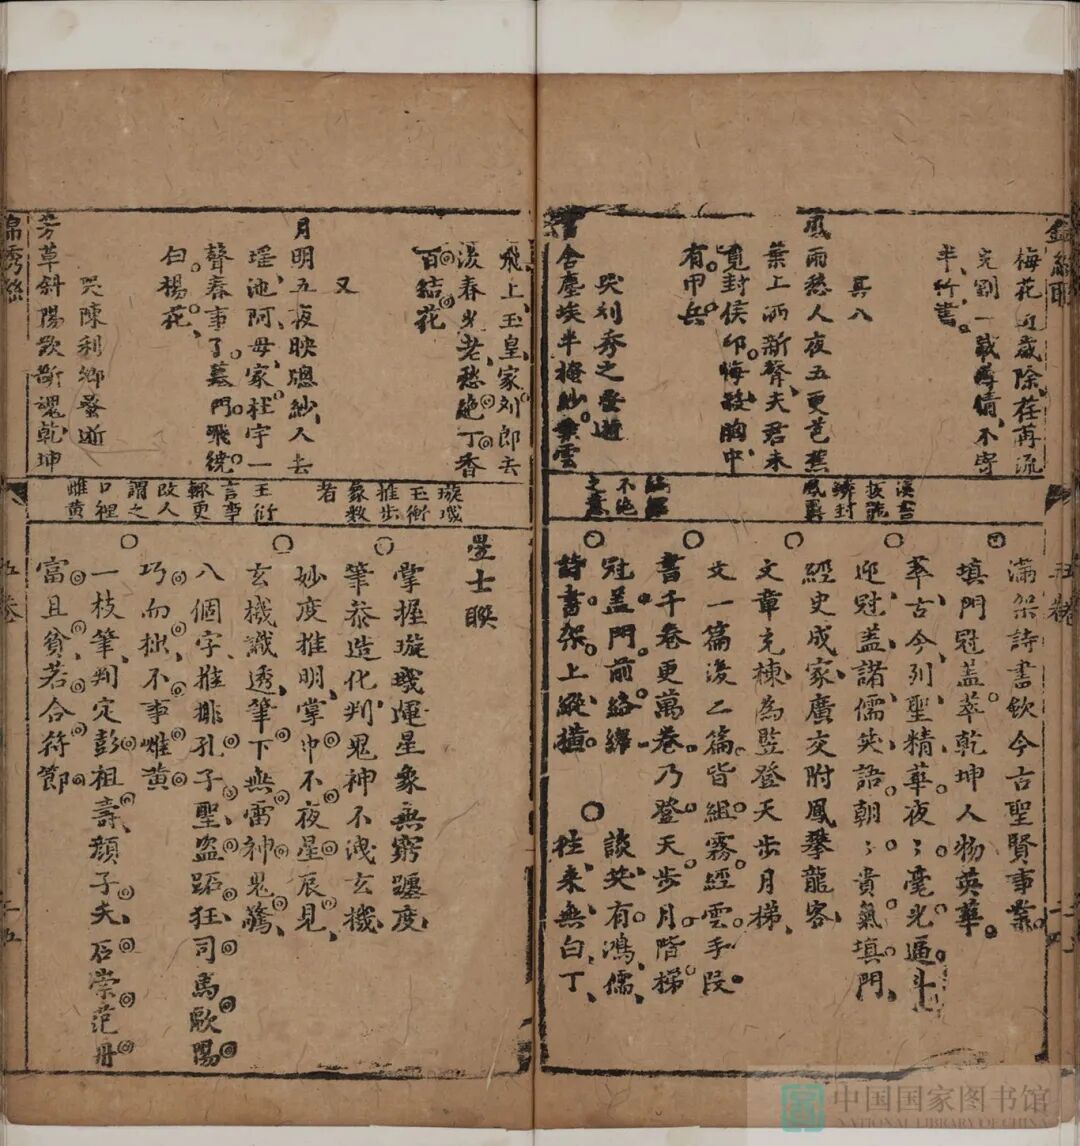 梅花近歲除荏苒流
完劄一載尋倩不寄
半行書
其八
風雨愁人夜五更芭蕉
葉上洒新聲夫君未
覓封侯印悔殺胸中
有甲兵
哭刘秀之蚤逝
書舍塵埃半掩紗乘雲
滿架詩書欽今古聖賢事業
填門冠蓋萃乾坤人物英華
萃古今列聖精華夜〻毫光逼斗
迎冠蓋諸儒笑語朝〻貴氣填門
經史成家廣交附鳳攀龍客
文章充棟為監登天步月梯
文一篇後二篇皆組霧經雲手段
書千卷更萬卷乃登天步月階梯
冠蓋門前絡繹
談笑有鴻儒
詩書架上縱橫
往來無白丁
五卷
飛上玉皇家刘郎去
後春光老愁绝丁香
百結花
又
月明五夜映窻紗人去
瑶池阿母家柱宇一
聲春事了墓門飛繞
白楊花
哭陳利卿蚤逝
芳草斜陽欲斷魂乾坤
璇璣
玉衡
推步
象数
者
王衍
言事
輒更
改人
謂之
口裡
雌黄
星士聯
掌握璇璣運星象無窮躔度
筆叅造化判鬼神不洩玄機
妙度推明掌中不夜星辰見
玄機識透筆下無寓神鬼驚
八個字推排孔子聖盗跖狂司馬歐陽
巧而拙不事雌黄
一枝筆判定彭祖壽顔子夭石崇范丹
富且貧若合符節
錦綉聯
五卷
十五
中国国家图书馆
NATIONAL LIBRARY OF CHINA